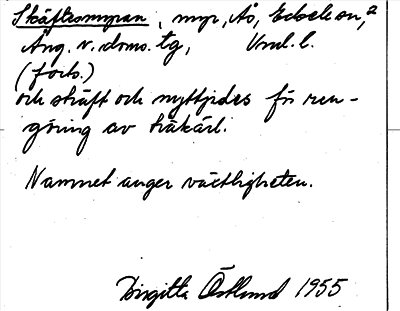 Skäftesmyran, myr, Ås,
Äng. v. dmo. tg, Vml. l.
(forts.)
och skaft och nyttjades för ren-
göring av träkärl.
Namnet anger växtligheten.
Birgitta Östlund 1955